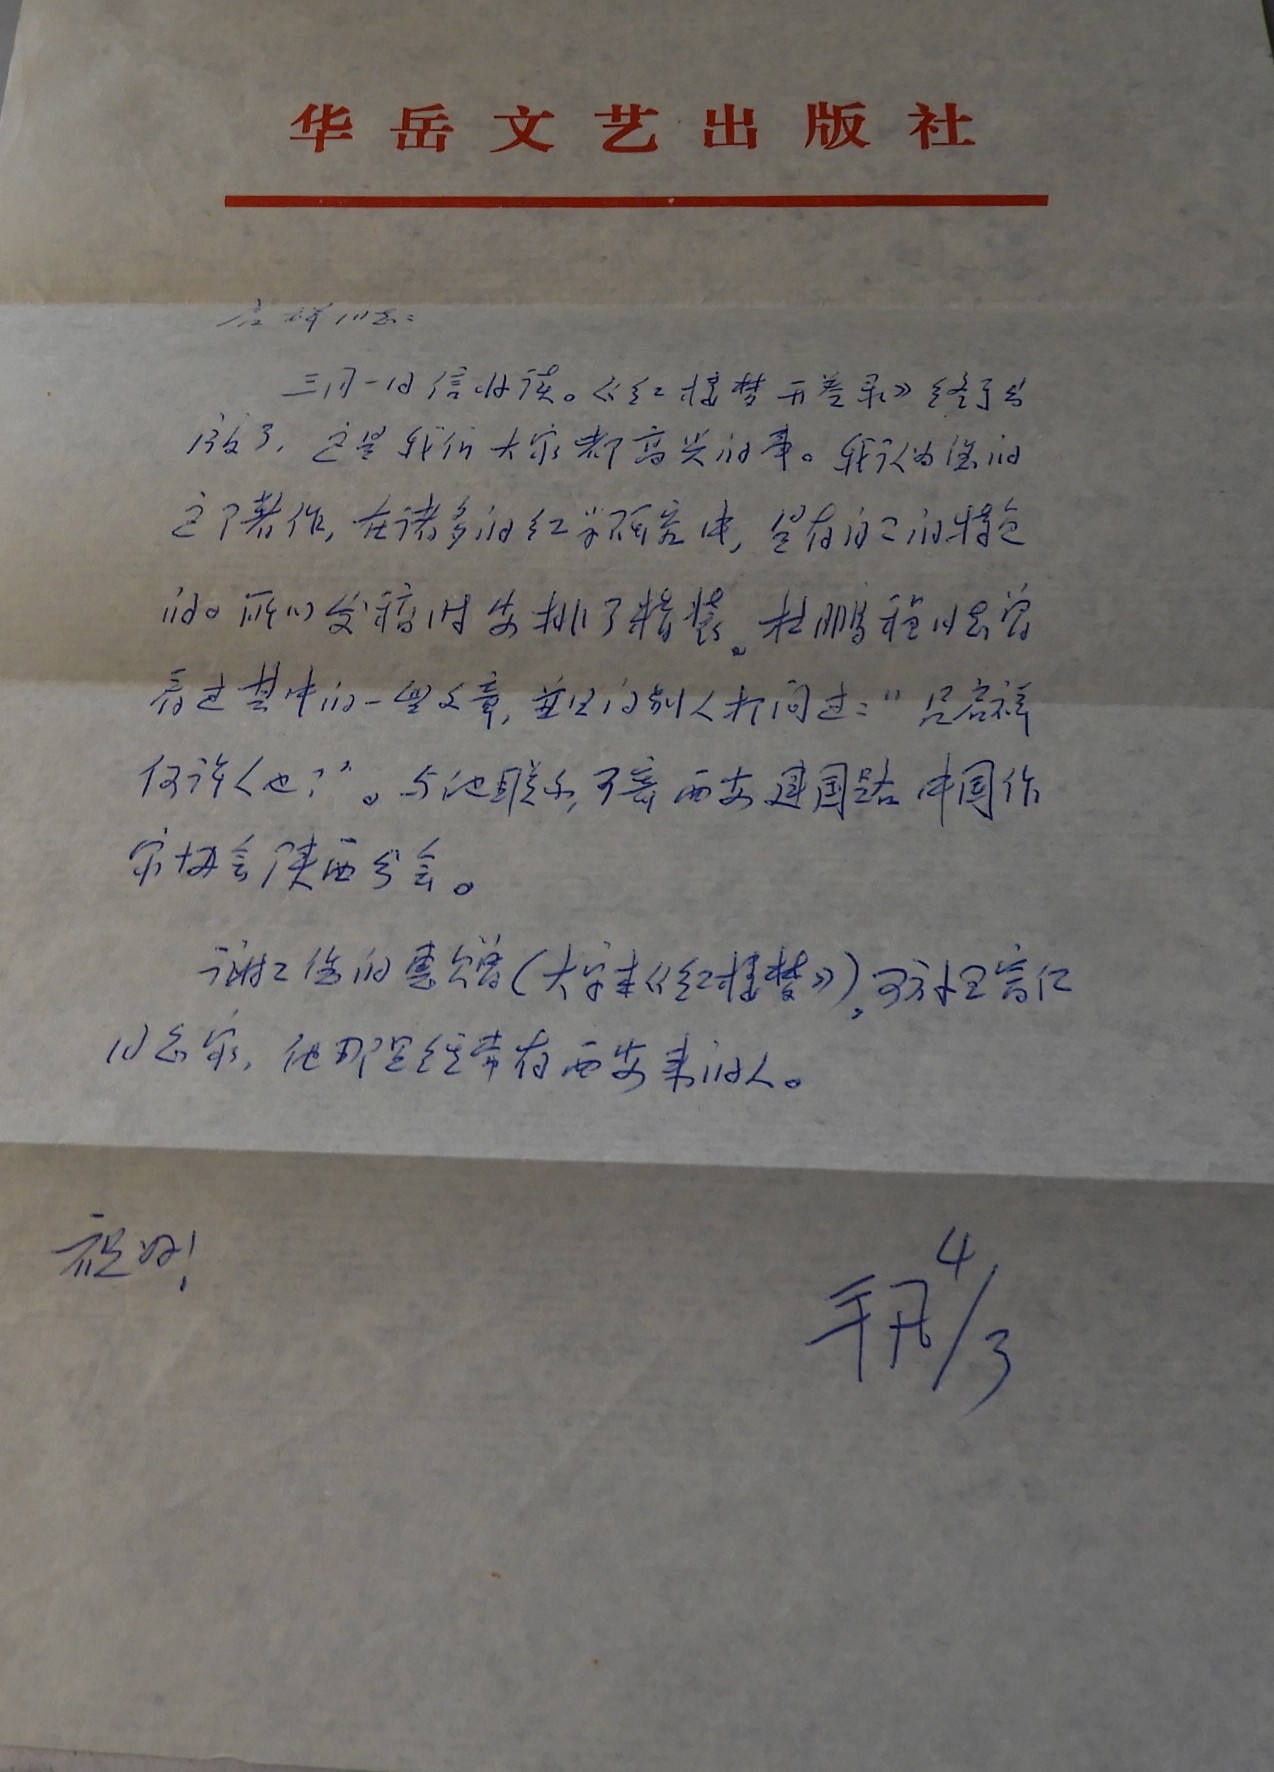 华岳文艺出版社
启祥同志：
三月一日信收读。《红楼梦开卷录》终于出
版了，这是我们大家都高兴的事。我认为您的
这个著作，在诸多的红学研究中，是有自己的特色
的。所以发稿时安排了精装。杜鹏程同志曾
看过其中的一些文章，并且向别人打问过：“吕启祥
何许人也？”。与他联系，可寄西安建国路中国作
家协会陕西分会。
谢谢您的惠赠（大字本《红楼梦》），可放王富仁
同志家，他那里经常有西安来的人。
祝好！
平凡 4/3